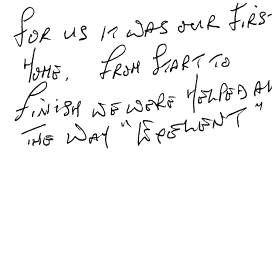 FOR US IT WAS OUR FIRS
HOME. FROM START TO
FINISH WE WERE HELPED AL
THE WAY "EXPELENT"